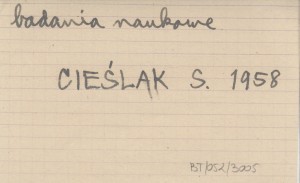 badania naukowe
CIEŚLAK S. 1958
BT/052/3005